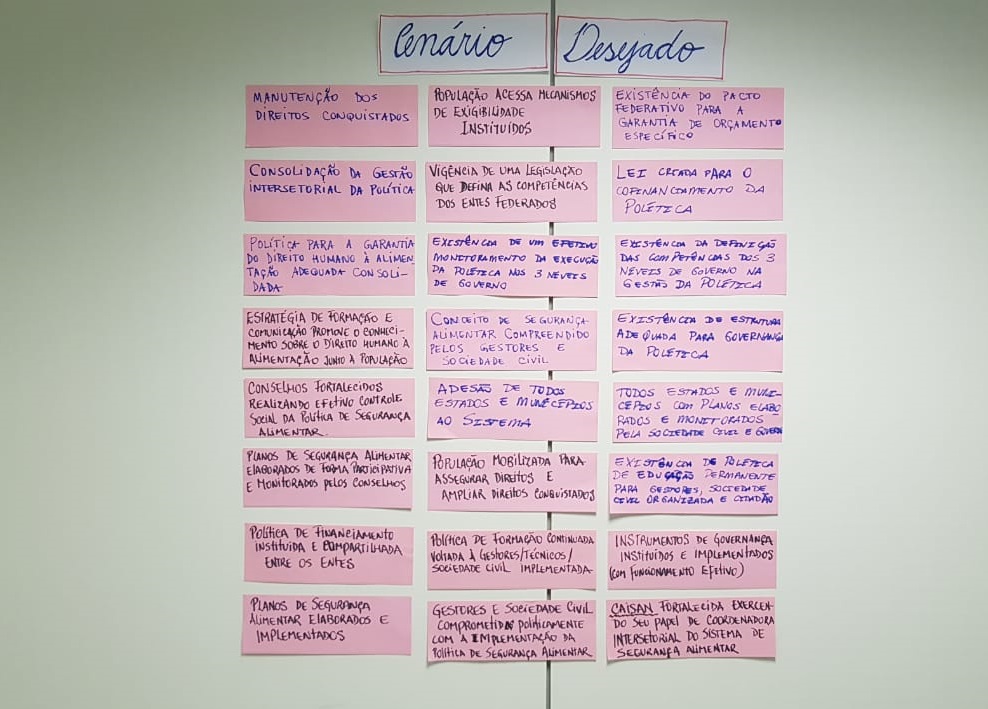 Cenário
Desejado
MANUTENÇÃO DOS
DIREITOS CONQUISTADOS
POPULAÇÃO ACESSA MECANISMOS
DE EXIGIBILIDADE
INSTITUÍDOS
EXISTÊNCIA DO PACTO
FEDERATIVO PARA A
GARANTIA DE ORÇAMENTO
ESPECÍFICO
CONSOLIDAÇÃO DA GESTÃO
INTERSETORIAL DA POLÍTICA
VIGÊNCIA DE UMA LEGISLAÇÃO
QUE DEFINA AS COMPETÊNCIAS
DOS ENTES FEDERADOS
LEI CRIADA PARA O
COFINANCIAMENTO DA
POLÍTICA
POLÍTICA PARA A GARANTIA
DO DIREITO HUMANO À ALIMEN-
TAÇÃO ADEQUADA CONSOLI-
DADA
EXISTÊNCIA DE UM EFETIVO
MONITORAMENTO DA EXECUÇÃO
DA POLÍTICA NOS 3 NÍVEIS
DE GOVERNO
EXISTÊNCIA DA DEFINIÇÃO
DAS COMPETÊNCIAS DOS 3
NÍVEIS DE GOVERNO NA
GESTÃO DA POLÍTICA
ESTRATÉGIA DE FORMAÇÃO E
COMUNICAÇÃO PROMOVE O CONHECI-
MENTO SOBRE O DIREITO HUMANO À
ALIMENTAÇÃO JUNTO À POPULAÇÃO
CONCEITO DE SEGURANÇA
ALIMENTAR COMPREENDIDO
PELOS GESTORES E
SOCIEDADE CIVIL
EXISTÊNCIA DE ESTRUTURA
ADEQUADA PARA GOVERNANÇA
DA POLÍTICA
CONSELHOS FORTALECIDOS
REALIZANDO EFETIVO CONTROLE
SOCIAL DA POLÍTICA DE SEGURANÇA
ALIMENTAR.
ADESÃO DE TODOS
ESTADOS E MUNICÍPIOS
AO SISTEMA
TODOS ESTADOS E MUNI-
CÍPIOS COM PLANOS ELABO
RADOS E MONITORADOS
PELA SOCIEDADE CIVIL E GOVERNO
PLANOS DE SEGURANÇA ALIMENTAR
ELABORADOS DE FORMA PARTICIPATIVA
E MONITORADOS PELOS CONSELHOS
POPULAÇÃO MOBILIZADA PARA
ASSEGURAR DIREITOS E
AMPLIAR DIREITOS CONQUISTADOS
EXISTÊNCIA DE POLÍTICA
DE EDUCAÇÃO PERMANENTE
PARA GESTORES, SOCIEDADE
CIVIL ORGANIZADA E CIDADÃO
POLÍTICA DE FINANCIAMENTO
INSTITUIDA E COMPARTILHADA
ENTRE OS ENTES
POLÍTICA DE FORMAÇÃO CONTINUADA
VOLTADA À GESTORES/TÉCNICOS/
SOCIEDADE CIVIL IMPLEMENTADA
INSTRUMENTOS DE GOVERNANÇA
INSTITUÍDOS E IMPLEMENTADOS
(COM FUNCIONAMENTO EFETIVO)
PLANOS DE SEGURANÇA
ALIMENTAR ELABORADOS E
IMPLEMENTADOS
GESTORES E SOCIEDADE CIVIL
COMPROMETIDA POLITICAMENTE
COM A IMPLEMENTAÇÃO DA
POLÍTICA DE SEGURANÇA ALIMENTAR.
CAISAN FORTALECIDA EXERCEN-
DO SEU PAPEL DE COORDENADORA
INTERSETORIAL DO SISTEMA DE
SEGURANÇA ALIMENTAR